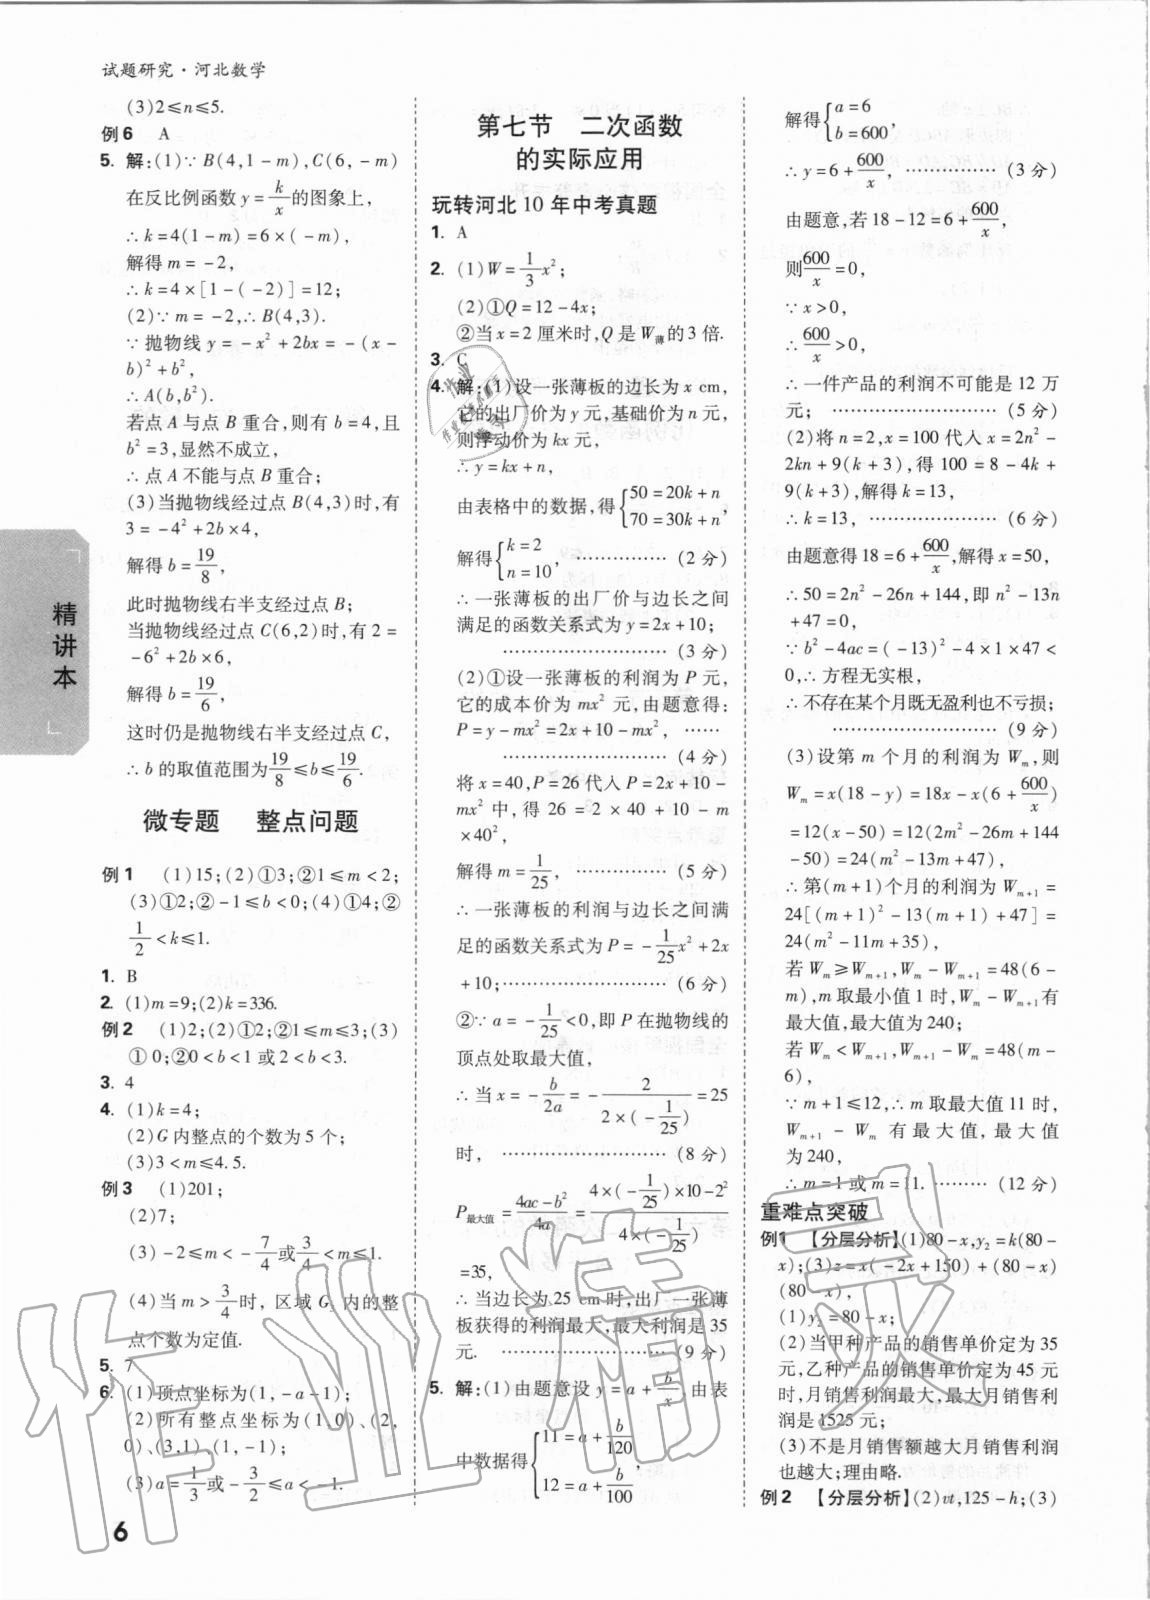 试题研究·河北数学
(3)2≤n≤5.
例6 A
5. 解:(1)∵B(4,1-m),C(6,-m)
在反比例函数y=k/x的图象上,
∴k=4(1-m)=6×(-m),
解得m=-2,
∴k=4×[1-(-2)]=12;
(2)∵m=-2,∴B(4,3).
∵抛物线y=-x²+2bx=-(x-
b)²+b²,
∴A(b,b²).
若点A与点B重合,则有b=4,且
b²=3,显然不成立,
∴点A不能与点B重合;
(3)当抛物线经过点B(4,3)时,有
3=-4²+2b×4,
解得b=19/8,
此时抛物线右半支经过点B;
当抛物线经过点C(6,2)时,有2=
-6²+2b×6,
解得b=19/6,
这时仍是抛物线右半支经过点C,
∴b的取值范围为19/8≤b≤19/6.
微专题 整点问题
例1 (1)15;(2)①3;②1≤m<2;
(3)①2;②-1≤b<0;(4)①4;②
1/2<k≤1.
1. B
2. (1)m=9;(2)k=336.
例2 (1)2;(2)①2;②1≤m≤3;(3)
①0;②0<b<1或2<b<3.
3. 4
4. (1)k=4;
(2)G内整点的个数为5个;
(3)3<m≤4.5.
例3 (1)201;
(2)7;
(3)-2≤m<-7/4或3/4<m≤1.
(4)当m>3/4时,区域G 内的整
点个数为定值.
5. 7
6. (1)顶点坐标为(1,-a-1);
(2)所有整点坐标为(1,0)、(2,
0)、(3,1)、(1,-1);
(3)a=1/3或-3/2≤a<-1.
精讲本
6
第七节 二次函数
的实际应用
玩转河北10年中考真题
1. A
2. (1)W=1/3x²;
(2)①Q=12-4x;
②当x=2厘米时,Q是W薄的3倍.
3. C
4. 解:(1)设一张薄板的边长为x cm,
它的出厂价为y元,基础价为n元,
则浮动价为kx元,
∴y=kx+n,
由表格中的数据,得{50=20k+n
70=30k+n,
解得{k=2
n=10, ……………… (2分)
∴一张薄板的出厂价与边长之间
满足的函数关系式为y=2x+10;
……………… (3分)
(2)①设一张薄板的利润为P元,
它的成本价为mx²元,由题意得:
P=y-mx²=2x+10-mx², ……
……………… (4分)
将x=40,P=26代入P=2x+10-
mx²中,得26=2×40+10-m
×40²,
解得m=1/25, ……………… (5分)
∴一张薄板的利润与边长之间满
足的函数关系式为P=-1/25x²+2x
+10; ……………… (6分)
②∵a=-1/25<0,即P在抛物线的
顶点处取最大值,
∴当x=-b/2a=-2/(2×(-1/25))=25
时, ……………… (8分)
P最大值=(4ac-b²)/4a=(4×(-1/25)×10-2²)/(4×(-1/25))
=35,
∴当边长为25 cm时,出厂一张薄
板获得的利润最大,最大利润是35
元. ……………… (9分)
5. 解:(1)由题意设y=a+b/x,由表
中数据得{11=a+b/120
12=a+b/100
解得{a=6
b=600,
∴y=6+600/x, ……………… (3分)
由题意,若18-12=6+600/x,
则600/x=0,
∵x>0,
∴600/x>0,
∴一件产品的利润不可能是12万
元; ……………… (5分)
(2)将n=2,x=100代入x=2n²-
2kn+9(k+3),得100=8-4k+
9(k+3),解得k=13,
∴k=13, ……………… (6分)
由题意得18=6+600/x,解得x=50,
∴50=2n²-26n+144,即n²-13n
+47=0,
∵b²-4ac=(-13)²-4×1×47<
0,∴方程无实根,
∴不存在某个月既无盈利也不亏损;
……………… (9分)
(3)设第m个月的利润为Wm,则
Wm=x(18-y)=18x-x(6+600/x)
=12(x-50)=12(2m²-26m+144
-50)=24(m²-13m+47),
∴第(m+1)个月的利润为Wm+1=
24[(m+1)²-13(m+1)+47]=
24(m²-11m+35),
若Wm≥Wm+1,Wm-Wm+1=48(6-
m),m取最小值1时,Wm-Wm+1有
最大值,最大值为240;
若Wm<Wm+1,Wm+1-Wm=48(m-
6),
∵m+1≤12,∴m取最大值11时,
Wm+1-Wm有最大值,最大值
为240,
∴m=1或m=11. ……… (12分)
重难点突破
例1 【分层分析】(1)80-x,y₂=k(80-
x);(3)z=x(-2x+150)+(80-x)
(80-x),
(1)y₂=80-x;
(2)当甲种产品的销售单价定为35
元,乙种产品的销售单价定为45元
时,月销售利润最大,最大月销售利
润是1525元;
(3)不是月销售额越大月销售利润
也越大;理由略.
例2 【分层分析】(2)vt,125-h;(3)
作业精灵